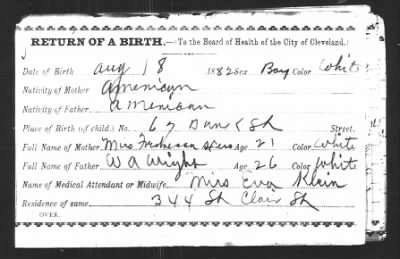 RETURN OF A BIRTH.—To the Board of Health of the City of Cleveland.
Date of Birth Aug 18 1882 Sex Boy Color White
Nativity of Mother American
Nativity of Father American
Place of Birth (of child.) No. 67 St Street.
Full Name of Mother Mrs Age 21 Color White
Full Name of Father W A Wright Age 26 Color White
Name of Medical Attendant or Midwife Mrs Eva Klein
Residence of same 344 St Clair St
OVER.